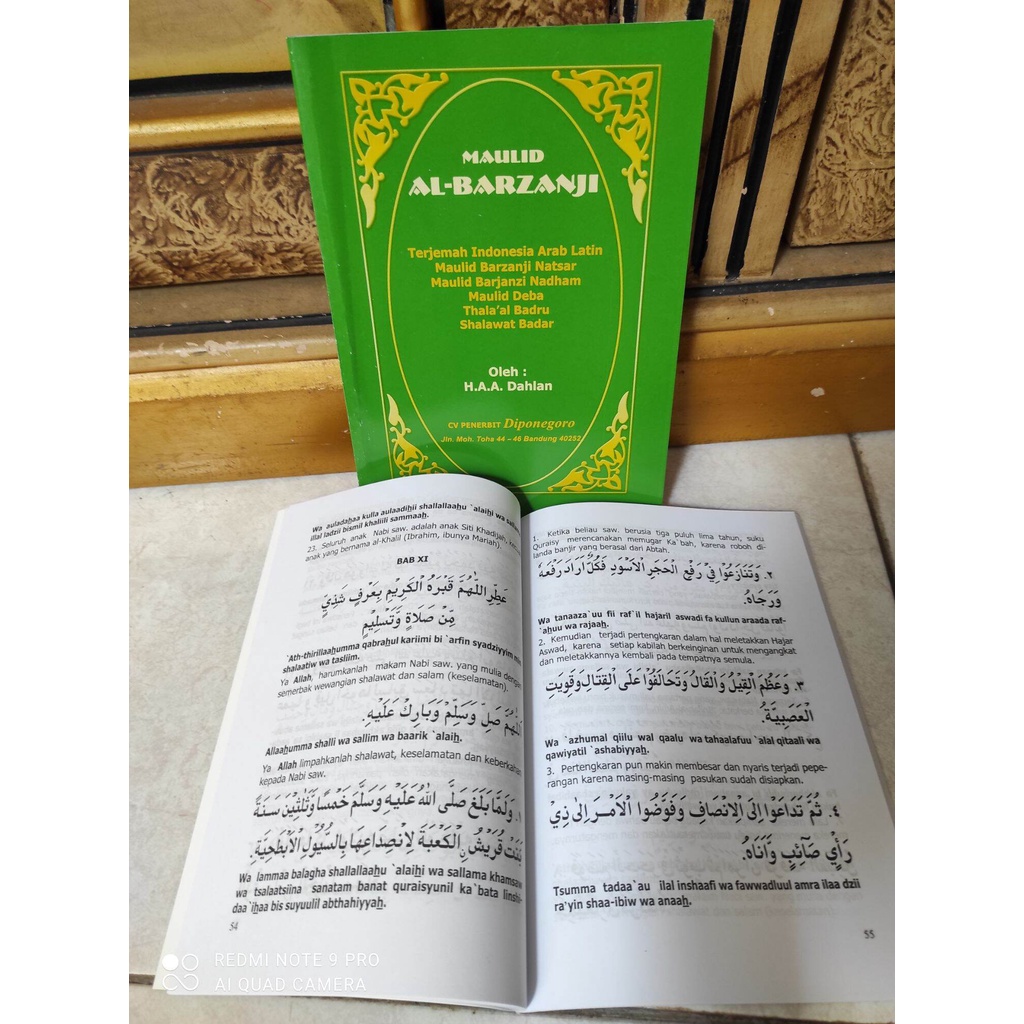 MAULID
AL-BARZANJI
Terjemah Indonesia Arab Latin
Maulid Barzanji Natsar
Maulid Barjanzi Nadham
Maulid Deba
Thala'al Badru
Shalawat Badar
Oleh :
H.A.A. Dahlan
CV PENERBIT Diponegoro
Jln. Moh. Toha 44 – 46 Bandung 40252
Wa auladahaa kulla aulaadihii shallallaahu `alaihi wa sallam
illal ladzii bismil khaliili sammaah.
23. Seluruh anak Nabi saw. adalah anak Siti Khadijah,
anak yang bernama al-Khalil (Ibrahim, ibunya Mariah).
BAB XI
عَطِّرِ اللّٰهُمَّ قَبْرَهُ الْكَرِيْمِ بِعَرْفٍ شَذِيٍّ
مِّنْ صَلَاةٍ وَّتَسْلِيْمٍ
`Ath-thirillaahumma qabrahul kariimi bi `arfin syadziyyim min
shalaatiw wa tasliim.
Ya Allah, harumkanlah makam Nabi saw. yang mulia dengan
semerbak wewangian shalawat dan salam (keselamatan).
اَللّٰهُمَّ صَلِّ وَسَلِّمْ وَبَارِكْ عَلَيْهِ.
Allaahumma shalli wa sallim wa baarik `alaih.
Ya Allah limpahkanlah shalawat, keselamatan dan keberkahan
kepada Nabi saw.
١. وَلَمَّا بَلَغَ صَلَّى اللّٰهُ عَلَيْهِ وَسَلَّمَ خَمْسًا وَّثَلٰثِيْنَ سَنَةً
بَنَتْ قُرَيْشٌ ۨالْكَعْبَةَ لِانْصِدَاعِهَا بِالسُّيُوْلِ الْاَبْطَحِيَّةِ.
Wa lammaa balagha shallallaahu `alaihi wa sallama khamsaw
wa tsalaatsiina sanatam banat quraisyunil ka`bata linshi-
daa`ihaa bis suyuulil abthahiyyah.
54
1. Ketika beliau saw. berusia tiga puluh lima tahun, suku
Quraisy merencanakan memugar Ka`bah, karena roboh di-
landa banjir yang berasal dari Abtah.
٢. وَتَنَازَعُوْا فِيْ رَفْعِ الْحَجَرِ الْاَسْوَدِ فَكُلٌّ اَرَادَ رَفْعَهُ
وَرَجَاهُ.
Wa tanaaza`uu fii raf`il hajaril aswadi fa kullun araada raf-
`ahuu wa rajaah.
2. Kemudian terjadi pertengkaran dalam hal meletakkan Hajar
Aswad, karena setiap kabilah berkeinginan untuk mengangkat
dan meletakkannya kembali pada tempatnya semula.
٣. وَعَظُمَ الْقِيْلُ وَالْقَالُ وَتَحَالَفُوْا عَلَى الْقِتَالِ وَقَوِيَتِ
الْعَصَبِيَّةُ.
Wa `azhumal qiilu wal qaalu wa tahaalafuu `alal qitaali wa
qawiyatil `ashabiyyah.
3. Pertengkaran pun makin membesar dan nyaris terjadi pepe-
rangan karena masing-masing pasukan sudah disiapkan.
٤. ثُمَّ تَدَاعَوْا اِلَى الْاِنْصَافِ وَفَوَّضُوا الْاَمْرَ اِلٰى ذِيْ
رَأْيٍ صَآئِبٍ وَّاَنَاهُ.
Tsumma tadaa`au ilal inshaafi wa fawwadluul amra ilaa dzii
ra'yin shaa-ibiw wa anaah.
55
REDMI NOTE 9 PRO
AI QUAD CAMERA